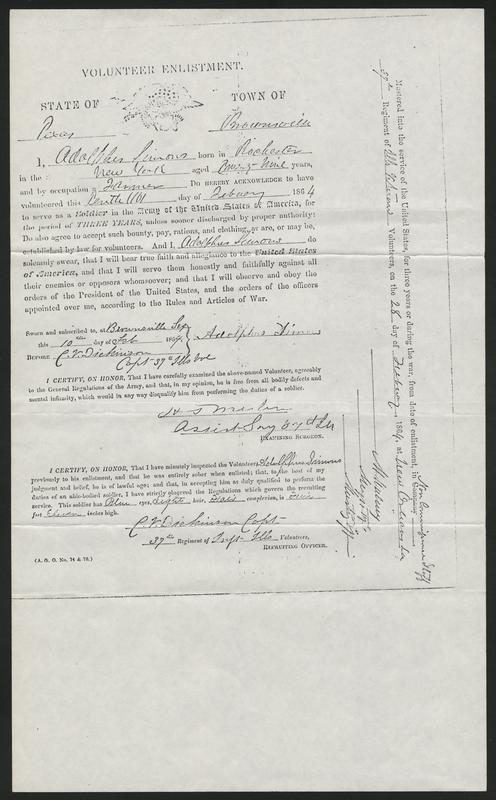 VOLUNTEER ENLISTMENT.
STATE OF TOWN OF
Texas Brownsville
I, Adolphus Simons born in Rochester
in the New York aged Twenty-Nine years,
and by occupation a Farmer DO HEREBY ACKNOWLEDGE to have
volunteered this Tenth day of February 1864
to serve as a Soldier in the Army of the United States of America, for
the period of THREE YEARS, unless sooner discharged by proper authority:
Do also agree to accept such bounty, pay, rations, and clothing, as are, or may be,
established by law for volunteers. And I, Adolphus Simons do
solemnly swear, that I will bear true faith and allegiance to the United States
of America, and that I will serve them honestly and faithfully against all
their enemies or opposers whomsoever; and that I will observe and obey the
orders of the President of the United States, and the orders of the officers
appointed over me, according to the Rules and Articles of War.
Sworn and subscribed to, at Brownsville Tex
this 10th day of Feb 1864 Adolphus Simons
BEFORE C. V. Dickinson
Capt 37th Ills
I CERTIFY, ON HONOR, That I have carefully examined the above-named Volunteer, agreeably
to the General Regulations of the Army, and that, in my opinion, he is free from all bodily defects and
mental infirmity, which would in any way disqualify him from performing the duties of a soldier.
Assist Surg
EXAMINING SURGEON.
I CERTIFY, ON HONOR, That I have minutely inspected the Volunteer, Adolphus Simons
previously to his enlistment, and that he was entirely sober when enlisted; that, to the best of my
judgment and belief, he is of lawful age; and that, in accepting him as duly qualified to perform the
duties of an able-bodied soldier, I have strictly observed the Regulations which govern the recruiting
service. This soldier has Blue eyes, Light hair, complexion, is Five
feet Eleven inches high.
C. V. Dickinson Capt
37th Regiment of Inft Ills Volunteers,
RECRUITING OFFICER.
(A. G. O. No. 74 & 76.)
Mustered into the service of the United States, for three years or during the war, from date of enlistment, in Company Non Commissioned Staff
37th Regiment of Ills Veteran Volunteers, on the 28 day of February 1864, at New Orleans La